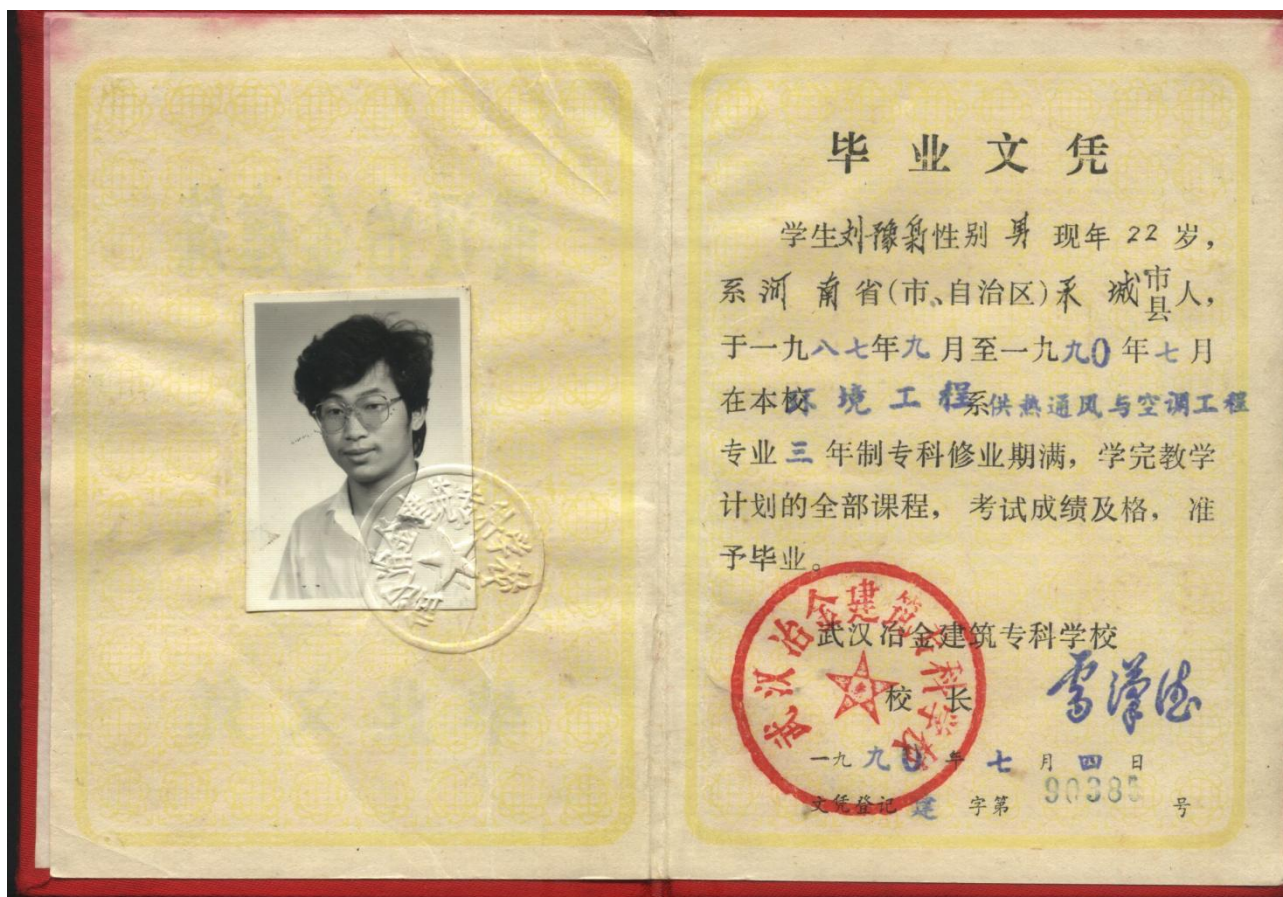 毕业文凭
学生刘豫新性别 男 现年 22 岁，
系河 南省(市、自治区) 城市县人，
于一九八七年九月至一九九0年七月
在本校环境工程系供热通风与空调工程
专业三年制专科修业期满，学完教学
计划的全部课程， 考试成绩及格， 准
予毕业。
武汉冶金建筑专科学校
武汉冶金建筑专科学校
校 长
一九九0年七月四日
文凭登记建字第 90385 号